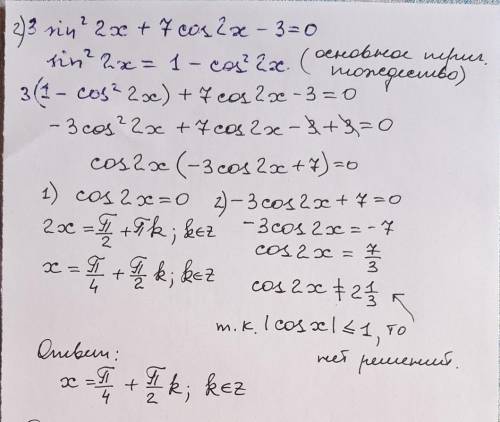 2) 3 sin² 2x + 7 cos 2x - 3 = 0
sin² 2x = 1 - cos² 2x. (основное триг. тождество)
3(1 - cos² 2x) + 7 cos 2x - 3 = 0
-3 cos² 2x + 7 cos 2x - 3 + 3 = 0
cos 2x (-3 cos 2x + 7) = 0
1) cos 2x = 0 2) -3 cos 2x + 7 = 0
2x = π/2 + πk; k∈z -3 cos 2x = -7
cos 2x = 7/3
x = π/4 + π/2 k; k∈z
cos 2x ≠ 2 1/3
т.к. |cos x| ≤ 1, то
нет решений.
Ответ:
x = π/4 + π/2 k; k∈z